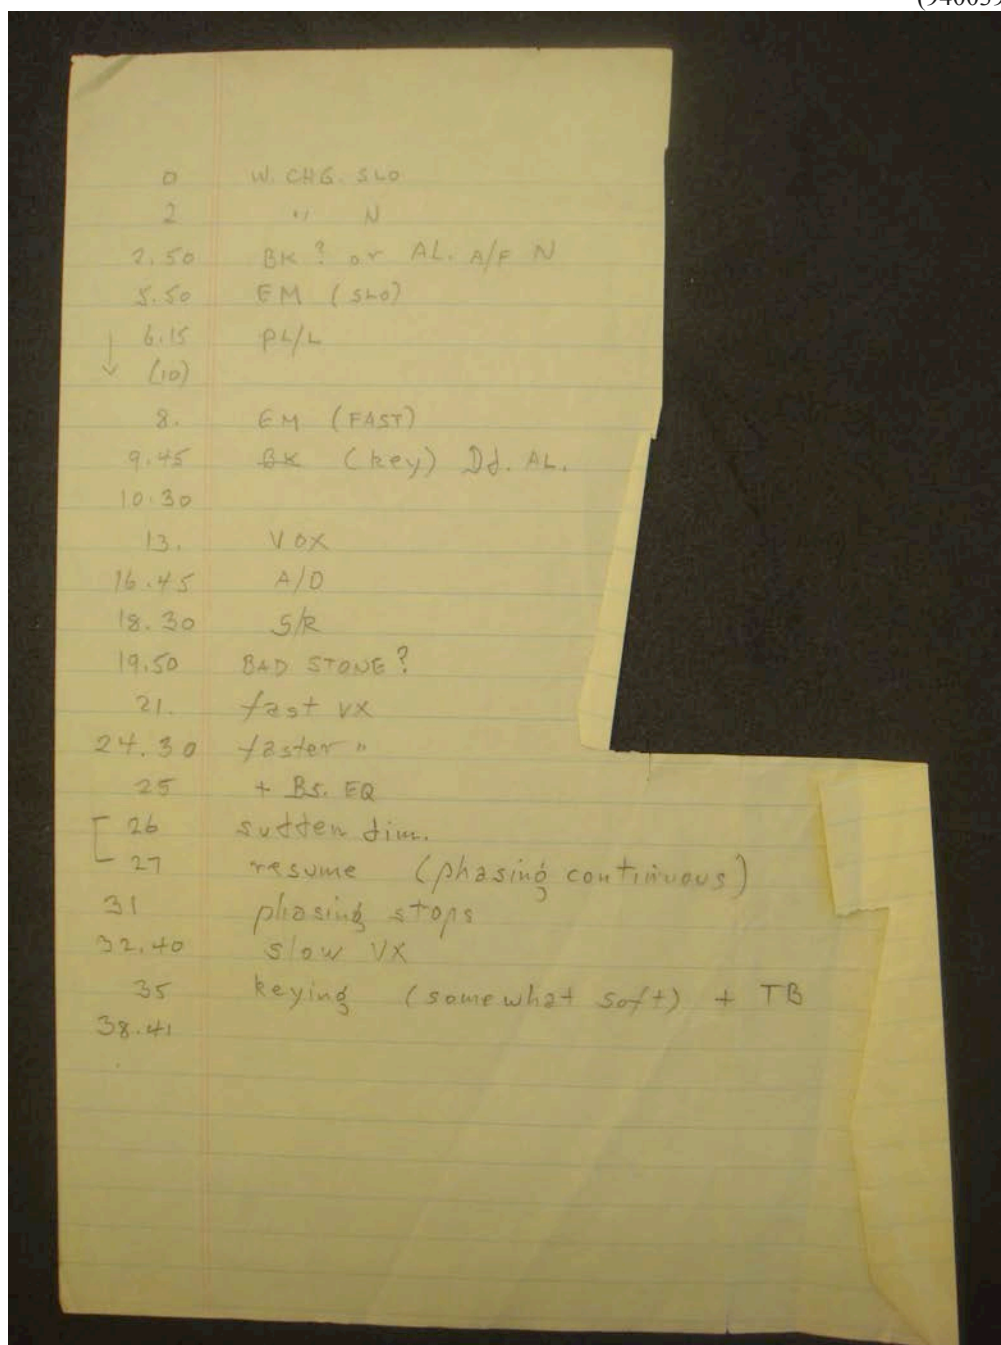 (940059
0 W. CHG. SLO
2 " N
2.50 BK ? or AL. A/F N
5.50 EM (SLO)
↓ 6.15 PL/L
(10)
8. EM (FAST)
9.45 BK (key) Dd. AL.
10.30
13. VOX
16.45 A/D
18.30 S/R
19.50 BAD STONE?
21. fast VX
24.30 faster "
25 + Bs. EQ
26 sudden dim.
27 resume (phasing continuous)
31 phasing stops
32.40 slow VX
35 keying (somewhat soft) + TB
38.41